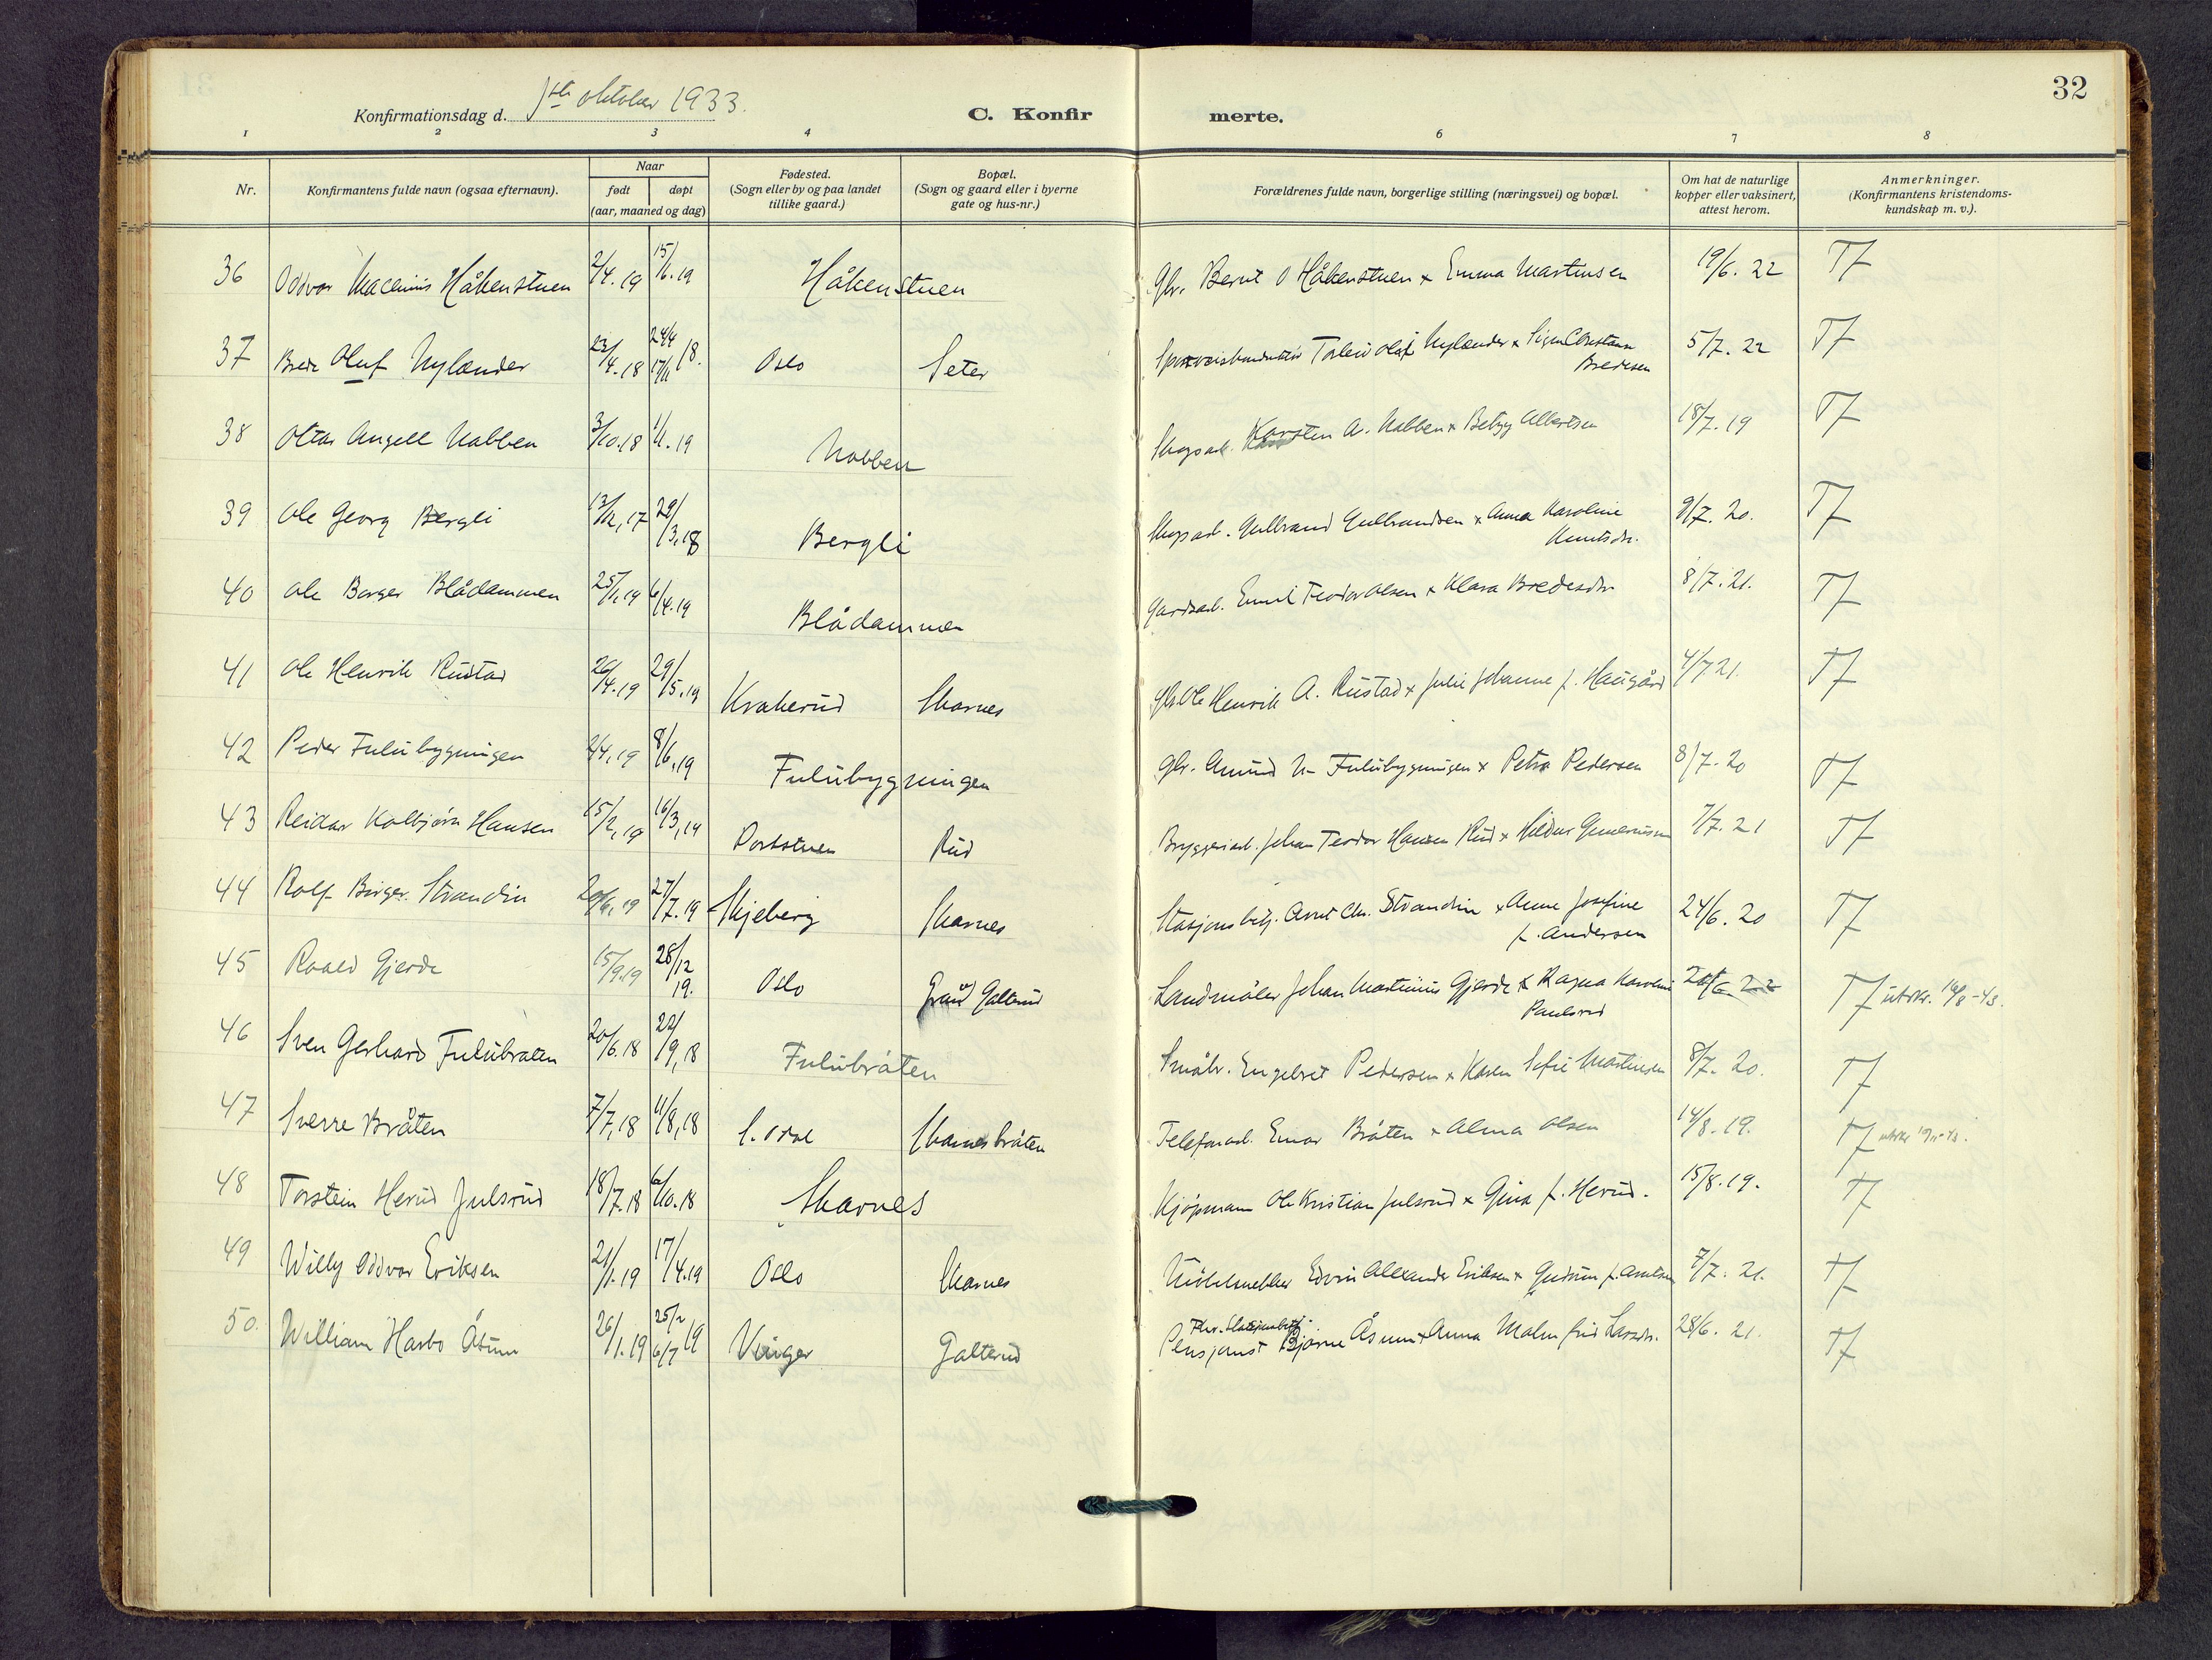 32
Konfirmationsdag d. 1ste oktober 1933.
C. Konfirmerte.
1 2 3 4 6 7 8
Nr.
Konfirmantens fulde navn (ogsaa efternavn).
Naar
født døpt
(aar, maaned og dag)
Fødested.
(Sogn eller by og paa landet
tillike gaard.)
Bopæl.
(Sogn og gaard eller i byerne
gate og hus-nr.)
Forældrenes fulde navn, borgerlige stilling (næringsvei) og bopæl.
Om hat de naturlige
kopper eller vaksinert,
attest herom.
Anmerkninger.
(Konfirmantens kristendoms-
kundskap m. v.).
36 Oddvar Håkenstuen 2/4.19 15/6.19 Håkenstuen Gbr. Bernt O Håkenstuen x Emma Martinsen 19/6. 22 TF
37 Brede Oluf Nylænder 23/4.18 24/4 17/11 18. Oslo Seter Sporveiskonduktør Torleiv Olaf Nylænder x Signe 5/7. 22 TF
Bredesen
38 Ottar Angell Nabben 3/10.18 1/1.19 Nabben Skogsarb. Karsten A. Nabben x Betzy Albertsen 18/7.19 TF
39 Ole Georg Bergli 13/12,17 29/3,18 Bergli Skogsarb. Gulbrand Gulbrandsen x Anna Karoline 9/7. 20. TF
Knutsdr.
40 Ole Borger Blådammen 25/1,19 6/4.19 Blådammen Gardsarb. Emil Teodor Olsen x Klara Bredesdr 8/7.21. TF
41 Ole Henrik Rustad 26/4.19 29/5.19 Krakerud Skarnes Gbr. Ole Henrik A. Rustad x Julie Johanne f. Haugård 4/7 21. TF
42 Peder Fulubygningen 2/4,19 8/6,19 Fulubygningen Gbr. Amund N- Fulubygningen x Petra Pedersen 8/7.20 TF
43 Reidar Kolbjørn Hansen 15/2,19 16/3,19 Portstuen Rud Bryggeriarb. Johan Teodor Hansen Rud x Hildur 7/7.21 TF
44 Rolf Birger Strandin 29/6,19 27/7.19 Skjeberg Skarnes Stasjonsbetj. Arnt Chr. Strandin x Anne Josefine 24/6.20 TF
f. Andersen
45 Roald Gjerde 15/9.19 28/12 19. Oslo Galterud Landmåler Johan Martinius Gjerde x Ragna Karoline 22 TF utskr. 16/8-43.
Paulsrud
46 Sven Gerhard Fulubråten 20/6.18 22/9,18 Fulubråten Småbr. Engebret Pedersen x Karen Sofie Martinsen 8/7.20. TF
47 Sverre Bråten 7/7,18 11/8,18 S. Odal Skarnesbråten Telefonarb. Einar Bråten x Alma Olsen 14/8.19. TF utskr
48 Torstein Herud Julsrud 18/7.18 6/10.18 Skarnes Kjøpmann Ole Kristian Julsrud x Gina f. Herud. 15/8.19. TF
49 Willy Oddvar Eriksen 21/1.19 17/4.19 Oslo Skarnes Edvin Alexander Eriksen x Gudrun f. Arntsen 7/7.21. TF
50. William Harbo Åsum 26/1.19 25/2 6/7 19 Vinger Galterud Fhv. Stasjonsbetj.
Pensjonist Bjarne Åsum x Anna Malmfrid Larsdr. 28/6.21. TF